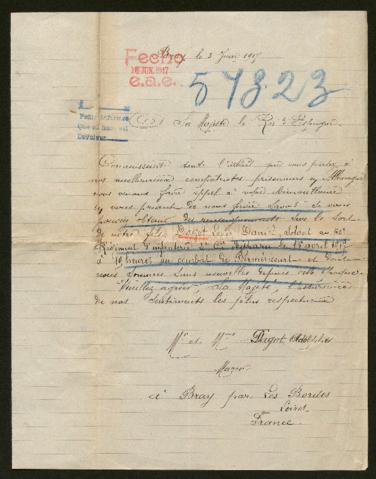 Bray le 3 Juin 1917
Fecho
16 JUN. 1917
e.a.e.
57823
Devolver
(A.S.) Sa Majesté le Roi d'Espagne
Connaissant tout l'intérêt que vous portez à
nos malheureux compatriotes prisonniers en Allemagne
nous venons faire appel à votre bienveillance
en vous priant de nous faire savoir si vous
pouvez obtenir des renseignements sur le sort
de notre fils Dagot Daniel soldat au
Régiment d'infanterie le 18 avril 1917
à 19 heures au combat de et dont
nous sommes sans nouvelles depuis cette
Veuillez agréer, Majesté, l'assurance
de nos sentiments les plus respectueux
Mr et Mme Dagot Adolphe
Maçon
à Bray par Les Bordes
Loiret
France